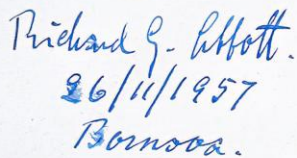 Richard G. Abbott.
26/11/1957
Bornova.